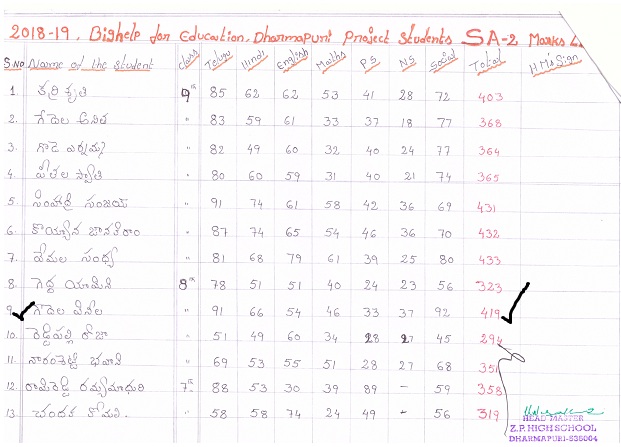 2018-19, Bighelp for Education, Dharmapuri Project Students SA-2 Marks
S.No Name of the Student class Telugu Hindi English Maths P.S N.S Social Total H.M's Sign
1. తర్రి కృతి 9th 85 62 62 53 41 28 72 403
2. గేదెల అనిత " 83 59 61 33 37 18 77 368
3. గొడె " 82 49 60 32 40 24 77 364
4. పీతల స్వాతి " 80 60 59 31 40 21 74 365
5. సింహాద్రి సంజయ్ " 91 74 61 58 42 36 69 431
6. కొయ్యాన జానకిరాం " 87 74 65 54 46 36 70 432
7. వేమల సంధ్య " 81 68 79 61 39 25 80 433
8. గెద్ద యామిని 8th 78 51 51 40 24 23 56 323
9. గెదెల వినీల " 91 66 54 46 33 37 92 419
10. రెడ్డిపల్లి రోజా " 51 49 60 34 28 27 45 294
11. నారంశెట్టి భవాని " 69 53 55 51 28 27 68 351
12. రామిరెడ్డి రమ్యమాధురి 7th 88 53 30 39 89 - 59 358
13. చందక " 58 58 74 24 49 - 56 319
HEAD MASTER
Z.P. HIGH SCHOOL
DHARMAPURI-535004